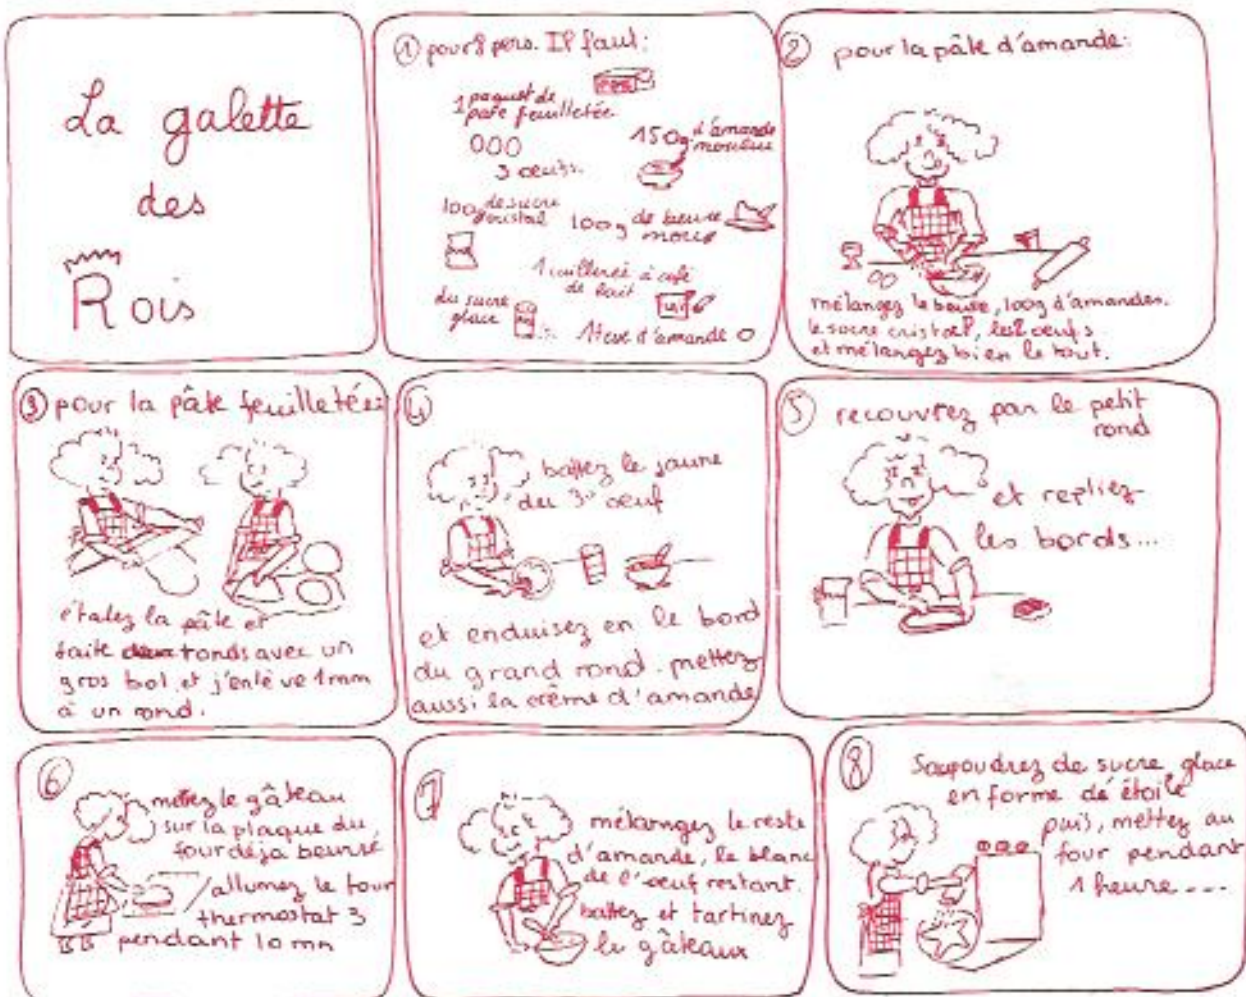 La galette
des
Rois
① pour 8 pers. Il faut:
1 paquet de
pate feuilletée
150g d'amande
moulue
3 oeufs.
100g de sucre
cristal
100g de beurre
mou
1 cuillerée à café
de lait
du sucre
glace
1 feve d'amande
② pour la pâte d'amande:
mélangez le beurre, 100g d'amandes.
le sucre cristal, les 2 oeufs
et mélangez bien le tout.
③ pour la pâte feuilletée:
étalez la pâte et
faite deux ronds avec un
gros bol. et j'enlève 1mm
à un rond.
④
battez le jaune
du 3e oeuf
et enduisez en le bord
du grand rond. mettez
aussi la crème d'amande
⑤ recouvrez par le petit
rond
et repliez
les bords...
⑥
mettez le gâteau
sur la plaque du
four déja beurré
allumez le four
thermostat 3
pendant 10 mn
⑦
mélangez le reste
d'amande, le blanc
de l'oeuf restant.
battez et tartinez
le gâteaux
⑧ Saupoudrez de sucre glace
en forme de étoile
puis, mettez au
four pendant
1 heure ---